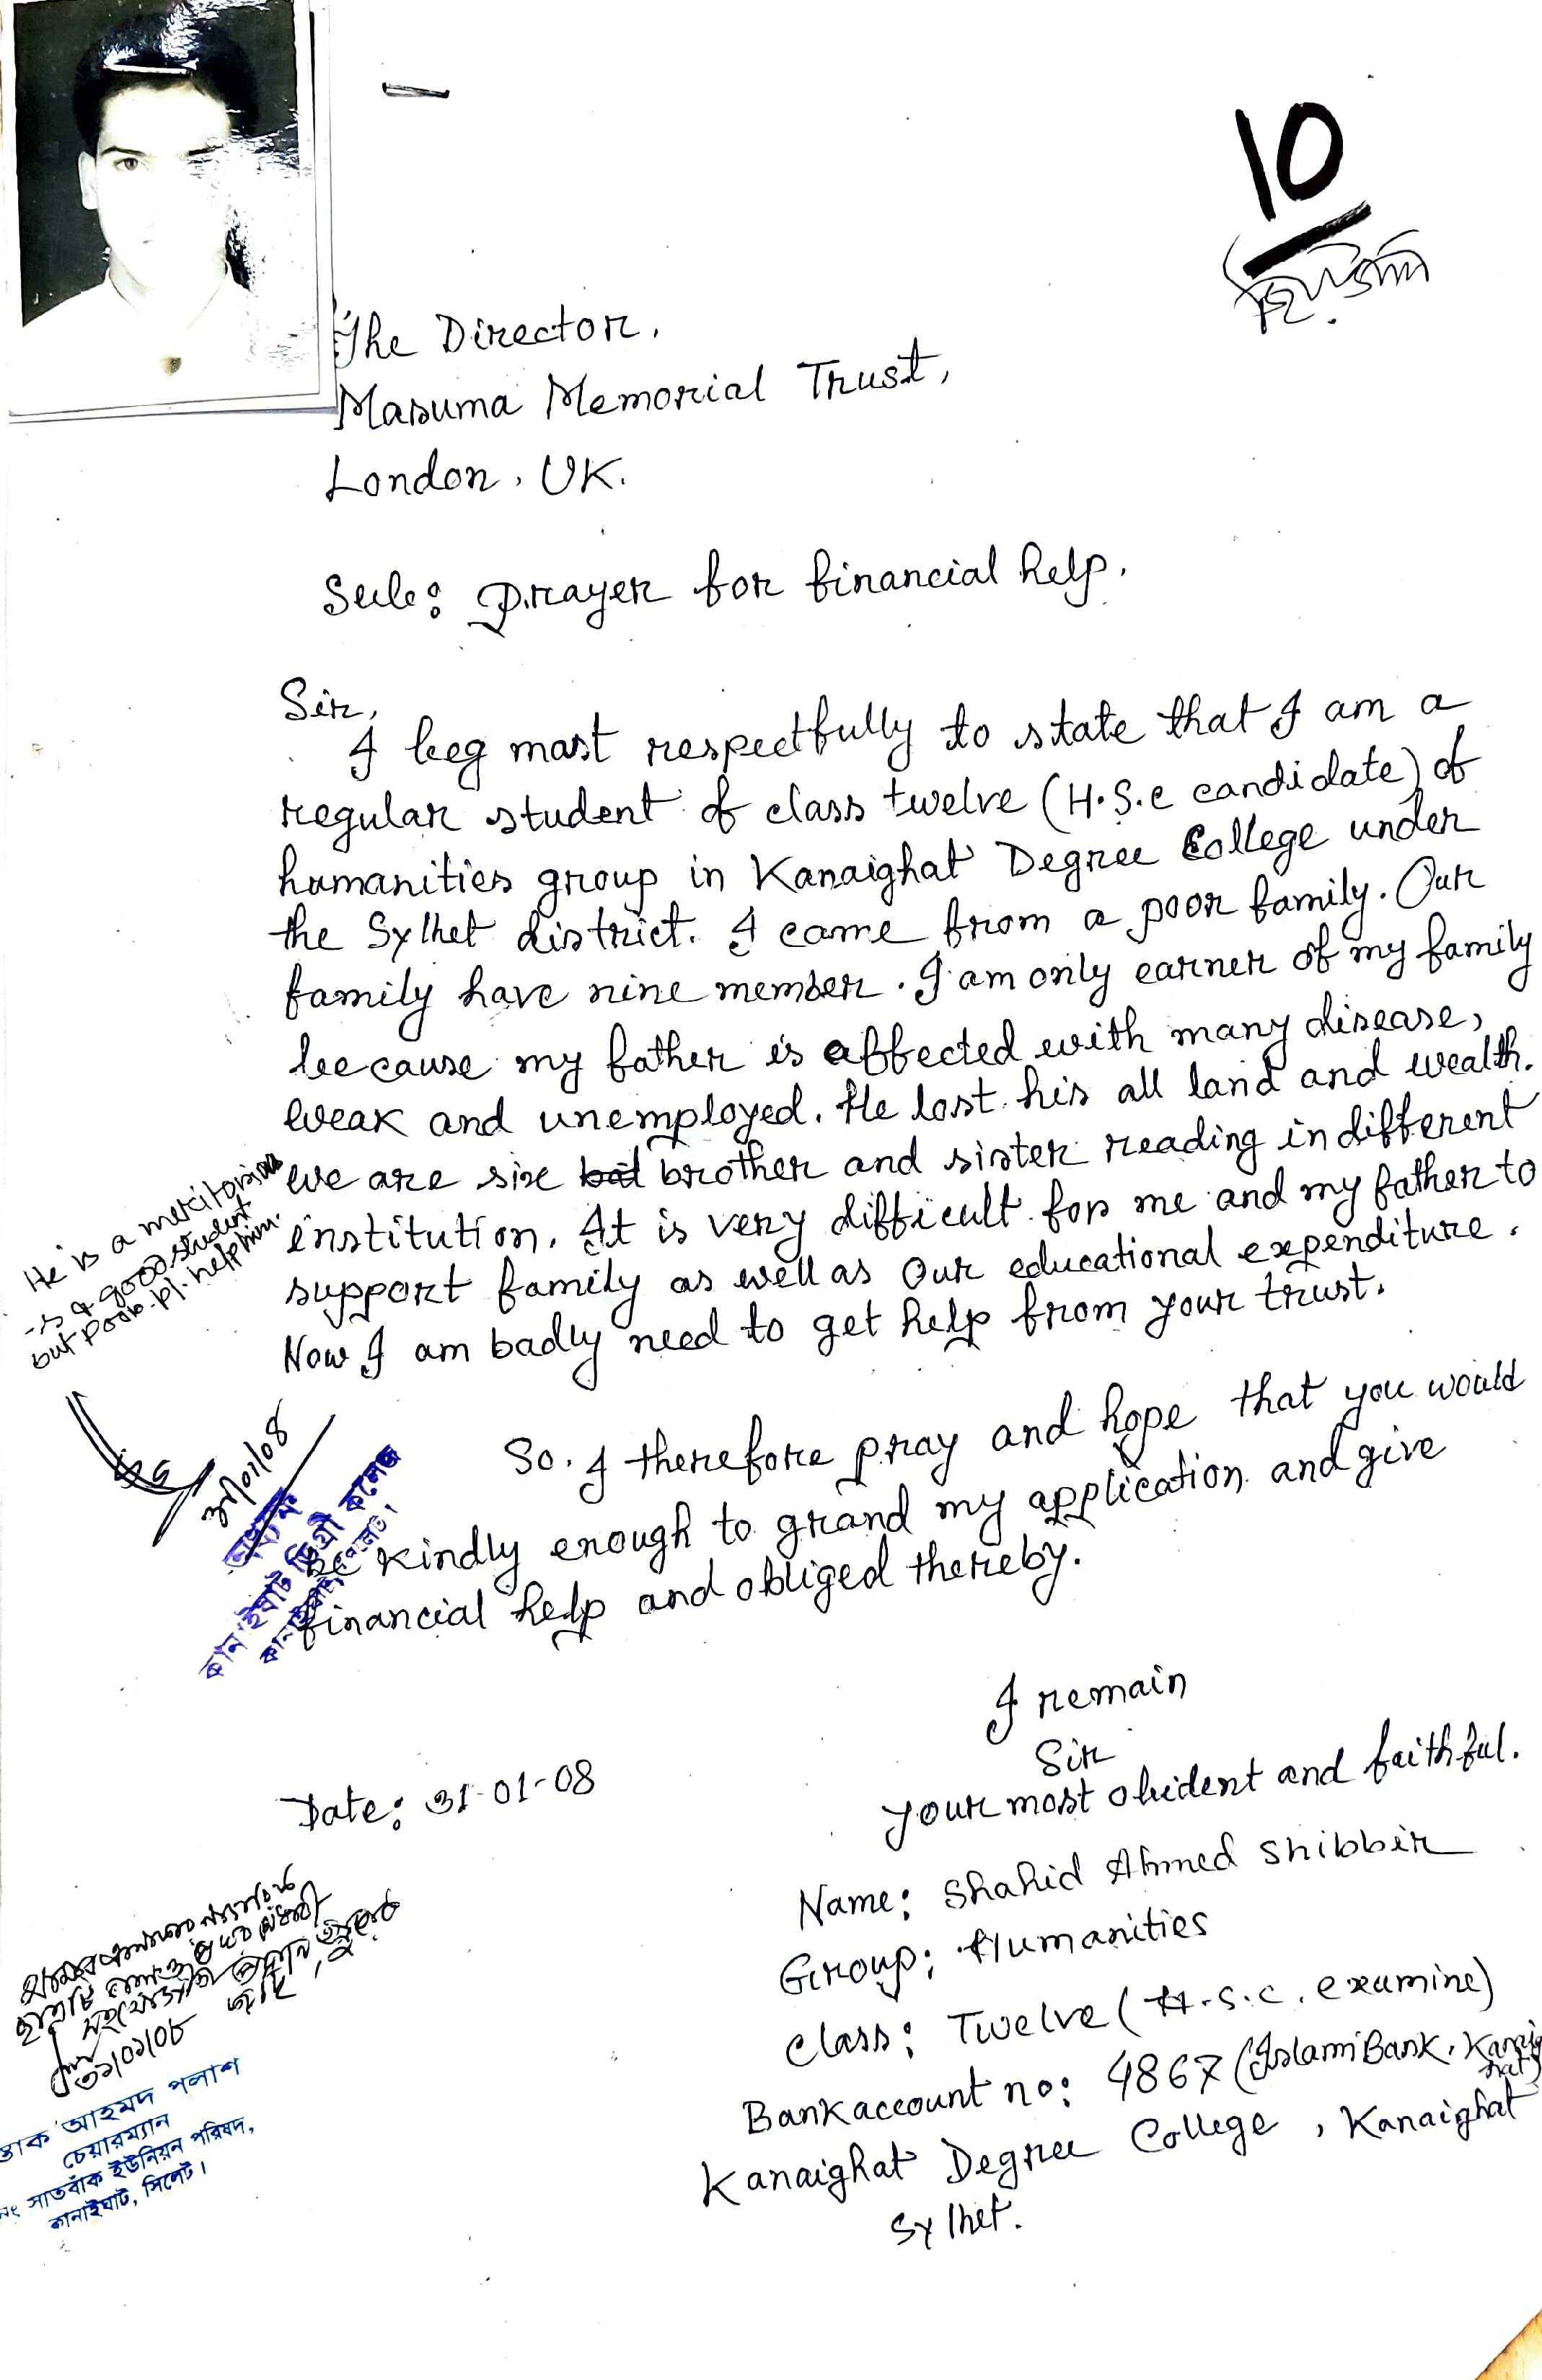 10
The Director,
Masuma Memorial Trust,
London, UK.
Sub: Prayer for financial help.
Sir,
I beg most respectfully to state that I am a
regular student of class twelve (H.S.c candidate) of
humanities group in Kanaighat Degree College under
the Sylhet district. I came from a poor family. Our
family have nine member. I am only earner of my family
because my father is affected with many disease,
weak and unemployed. He lost his all land and wealth.
we are six brother and sister reading in different
institution. It is very difficult for me and my father to
support family as well as our educational expenditure.
Now I am badly need to get help from your trust.
He is a meritorious
is a good student
but poor. pl. help him.
So. I therefore pray and hope that you would
be kindly enough to grand my application and give
financial help and obliged thereby.
31/01/08
অধ্যক্ষ
কানাইঘাট ডিগ্রী কলেজ
কানাইঘাট, সিলেট।
I remain
Sir
your most obident and faithful.
Date: 31-01-08
Name: Shahid Ahmed Shibbir
Group: Humanities
Class: Twelve (H.S.C. examine)
Bank account no: 4867 (Islami Bank, Kanaighat)
Kanaighat Degree College, Kanaighat
Sylhet.
৩১/০১/০৮
আহমদ পলাশ
চেয়ারম্যান
সাতবাঁক ইউনিয়ন পরিষদ,
কানাইঘাট, সিলেট।